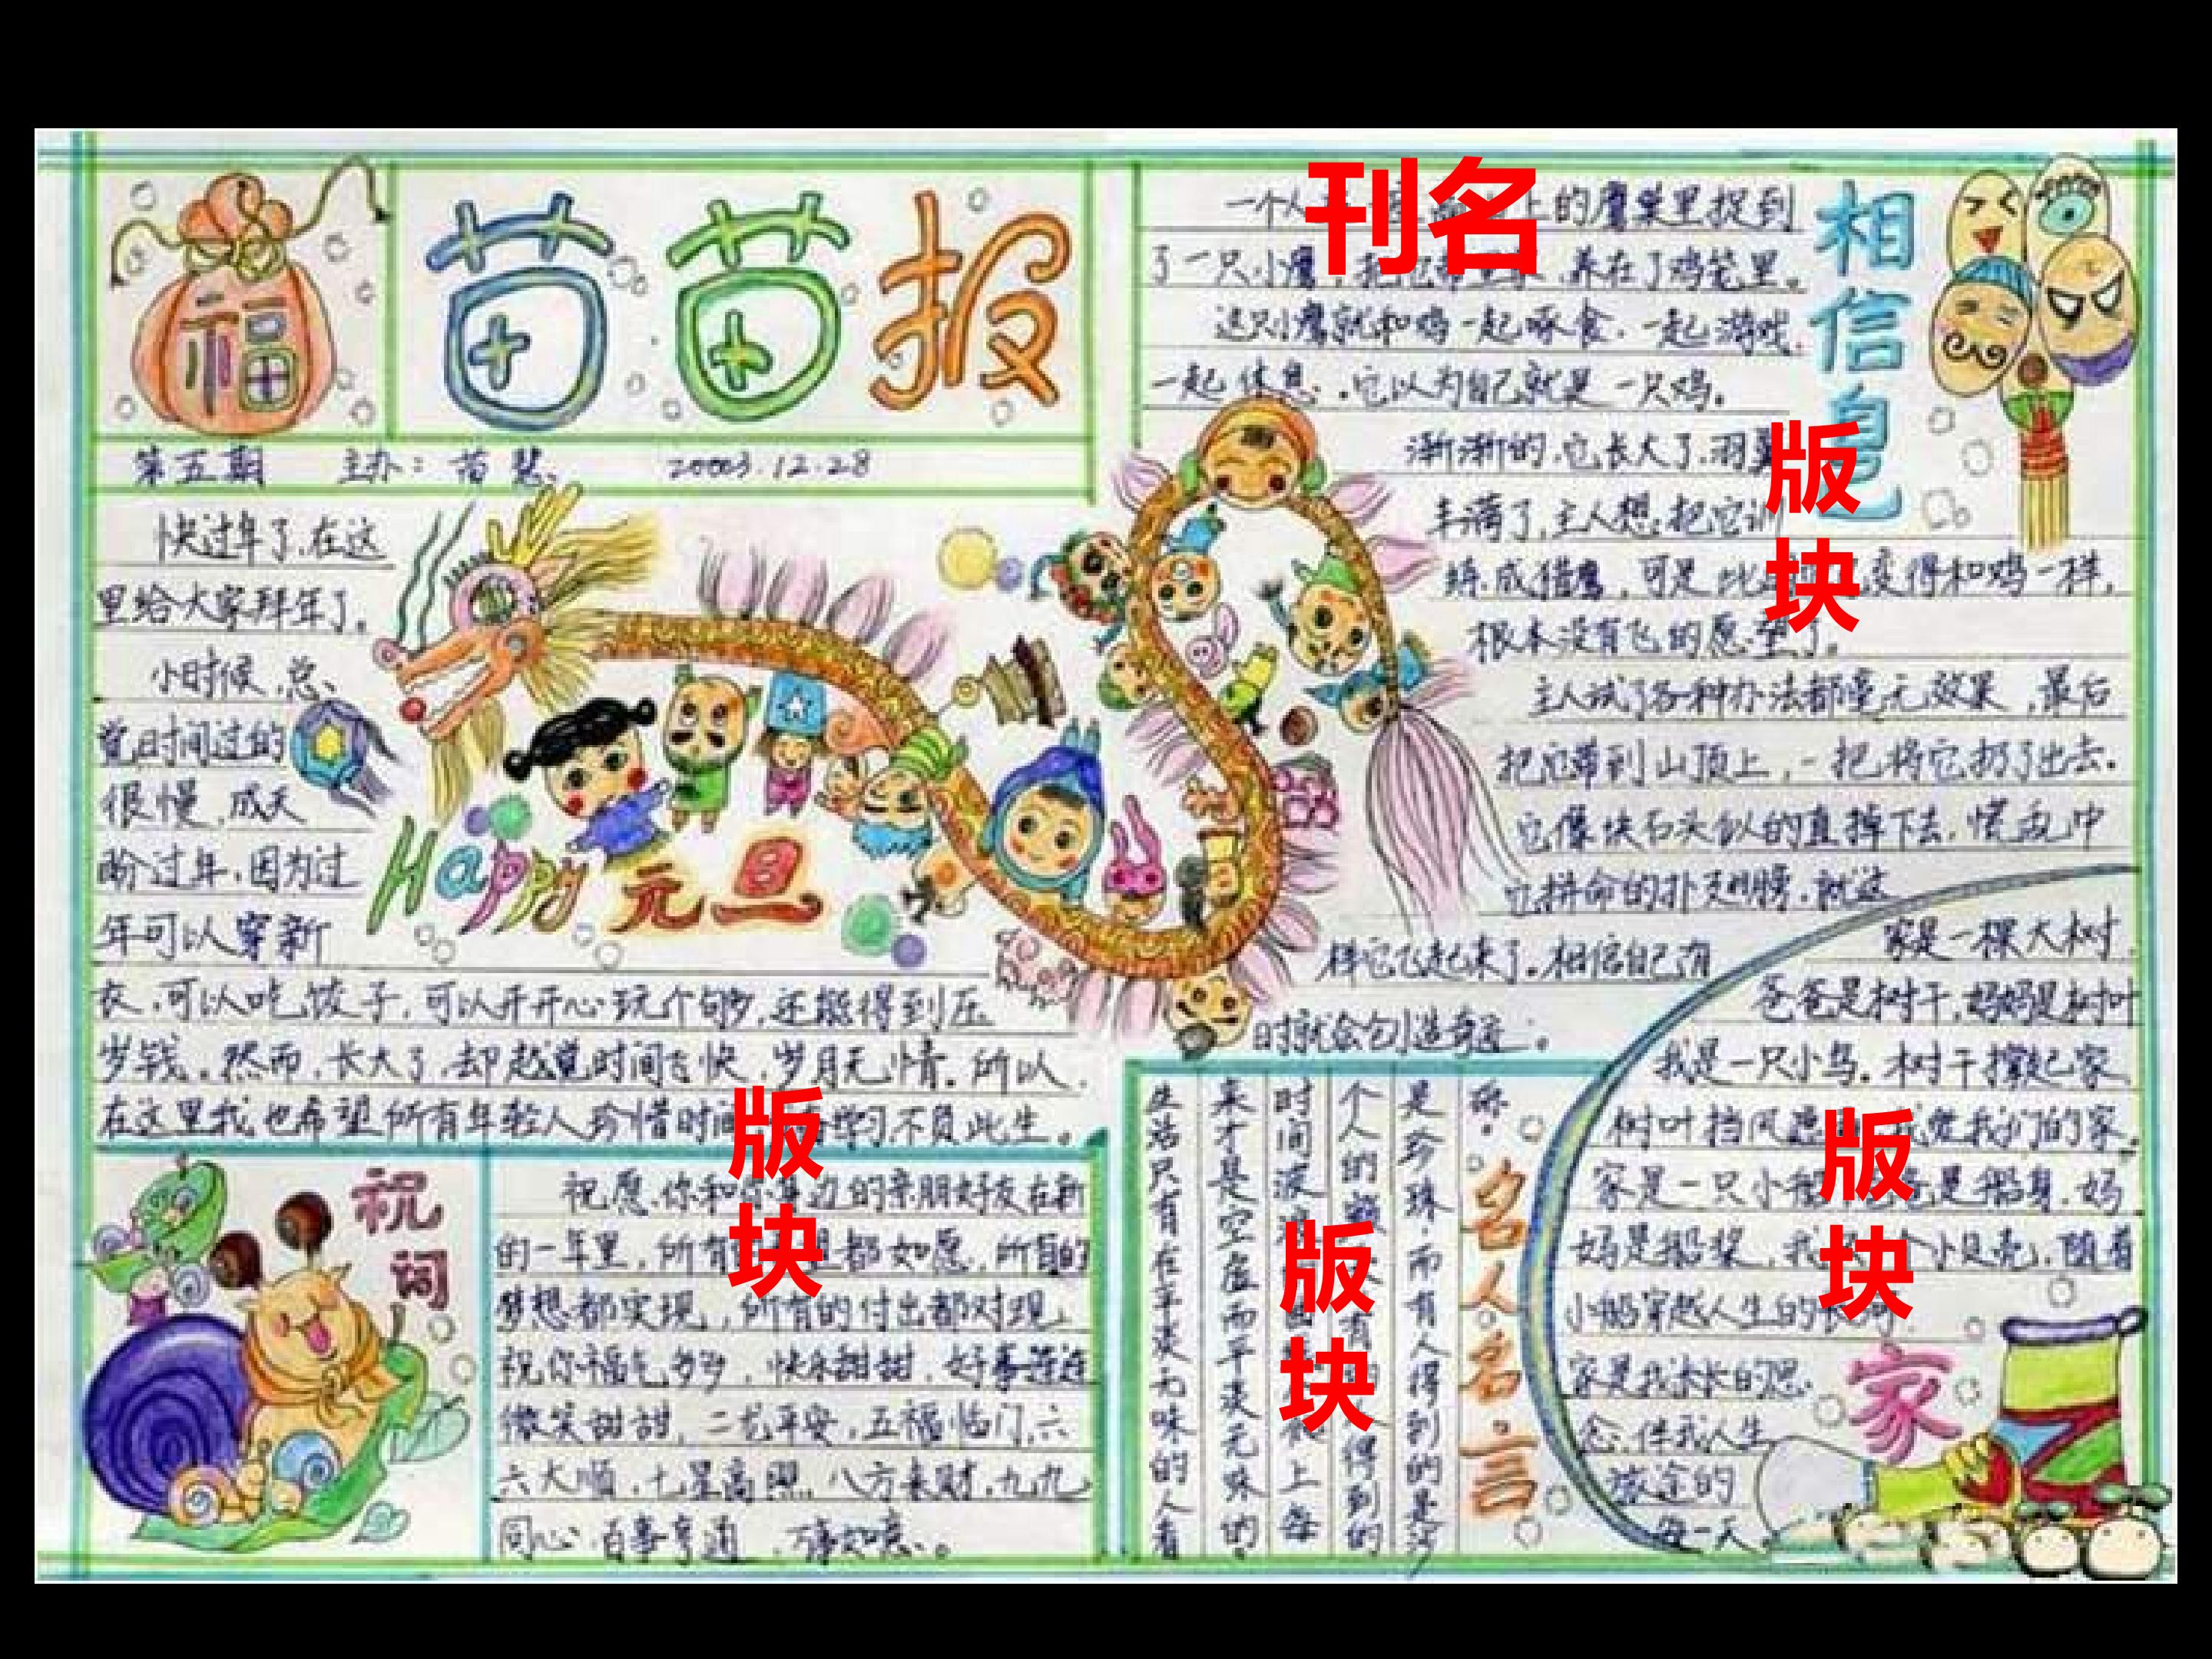 福
苗苗报
第五期 主办：苗慧 20003.12.28
快过年了，在这
里给大家拜年了。
小时候，总
觉时间过的
很慢，成天
盼过年，因为过
年可以穿新
衣，可以吃饺子，可以开开心玩个够，还能得到压
岁钱。然而，长大了，却越觉时间飞快，岁月无情。所以，
在这里我也希望所有年轻人珍惜时间，学习，不负此生。
Happy 元旦
刊名
一个人上的鹰巢里捉到
了一只小鹰，养在了鸡笼里。
这只小鹰就和鸡一起啄食，一起游戏，
一起休息。它以为自己就是一只鸡。
渐渐的，它长大了，羽翼
丰满了，主人想把它训
练成猎鹰，可是变得和鸡一样，
根本没有飞的愿望了。
主人试了各种办法都毫无效果，最后
把它带到山顶上，一把将它扔了出去。
它像块石头似的直掉下去，慌乱中
它拼命的扑翅膀，就这
样它飞起来了。相信自己有
时就会创造奇迹。
相信自己
版块
祝词
祝愿你和边的亲朋好友在新
的一年里，所有都如愿，所有的
梦想都实现，所有的付出都对现
祝你福气多多，快乐甜甜，好事连连
微笑甜甜，二龙平安，五福临门，六
六大顺，七星高照，八方来财，九九
同心，百事亨通，万事如意。
版块
名人名言
砾。
是珍珠，而有人得到的是沙
个人的得到的
时间上每
来才是空虚而平淡无味的。
生活只有在平淡无味的人看
版块
家是一棵大树，
爸爸是树干，妈妈是树叶
我是一只小鸟。树干撑起家，
树叶挡风我们的家。
家是一只小船是船身，妈
妈是船桨，小贝壳，随着
小船穿越人生的
家是我永长的思
念，伴我人生
旅途的
每一天。
家
版块